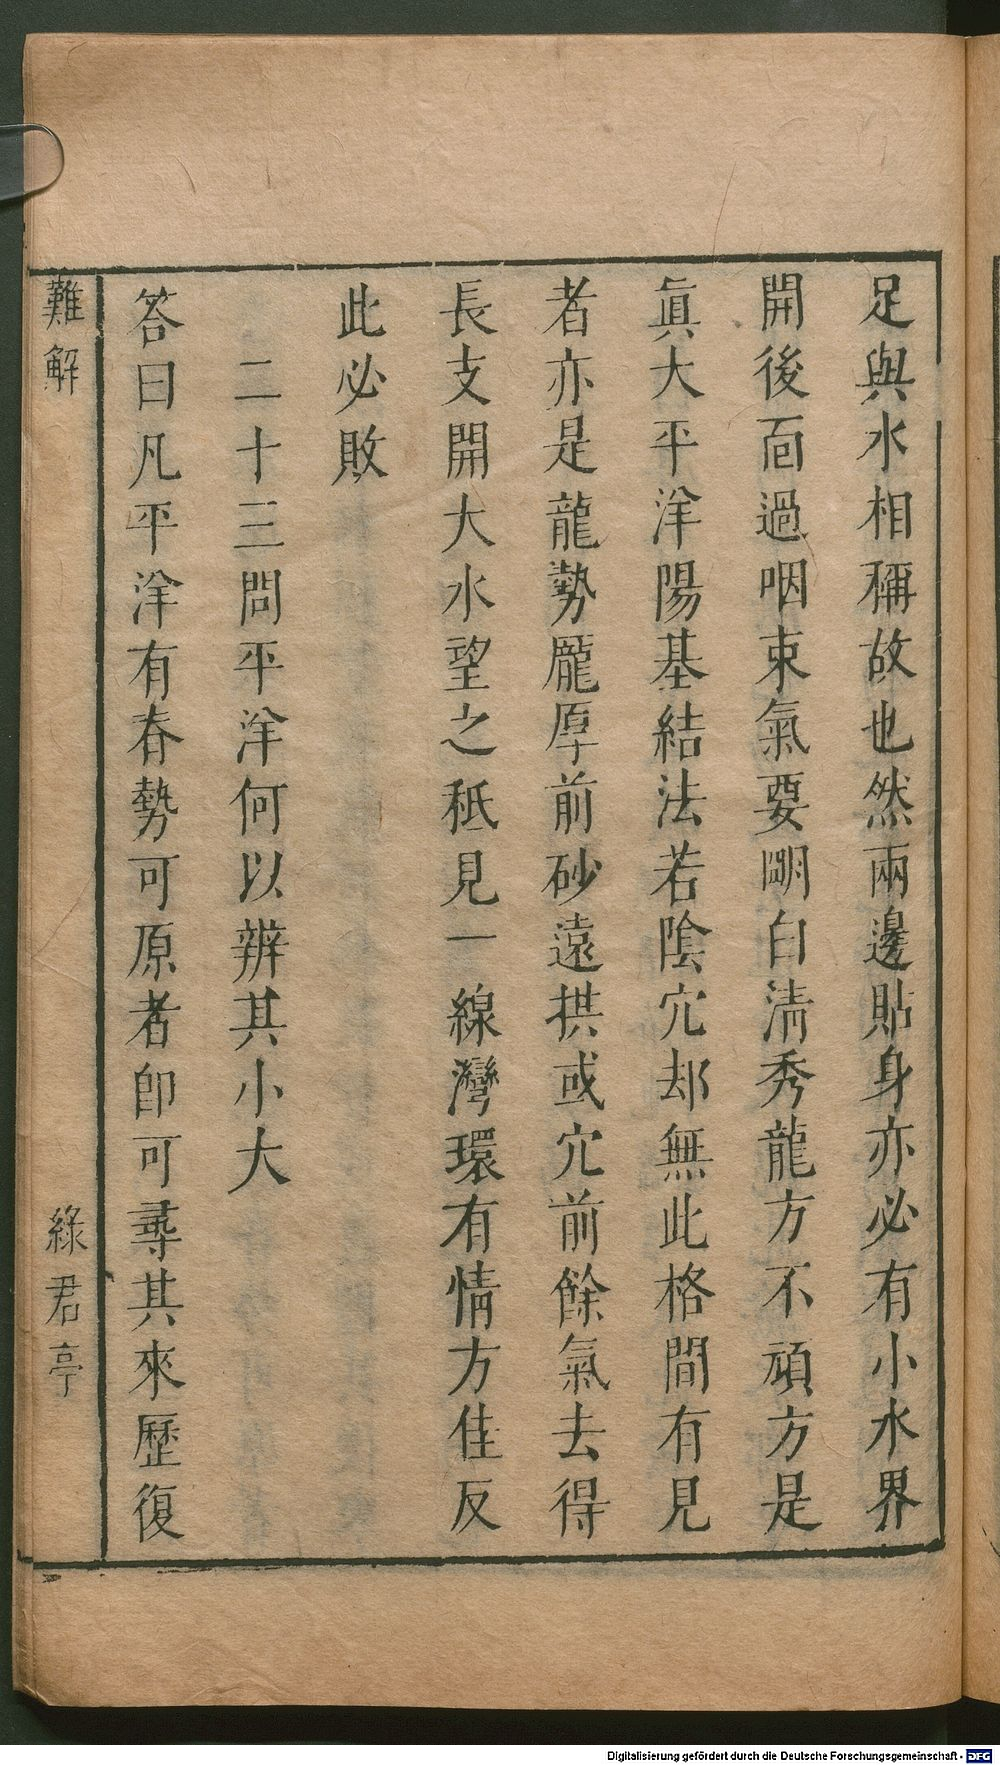 足與水相稱故也然兩邊貼身亦必有小水界
開後面過咽束氣要明白清秀龍方不頑方是
眞大平洋陽基結法若陰穴却無此格間有見
者亦是龍勢龐厚前砂遠拱或穴前餘氣去得
長支開大水望之秪見一線灣環有情方佳反
此必敗
二十三問平洋何以辨其小大
答曰凡平洋有春勢可原者卽可尋其來歷復
難解
綠君亭
Digitalisierung gefördert durch die Deutsche Forschungsgemeinschaft - DFG